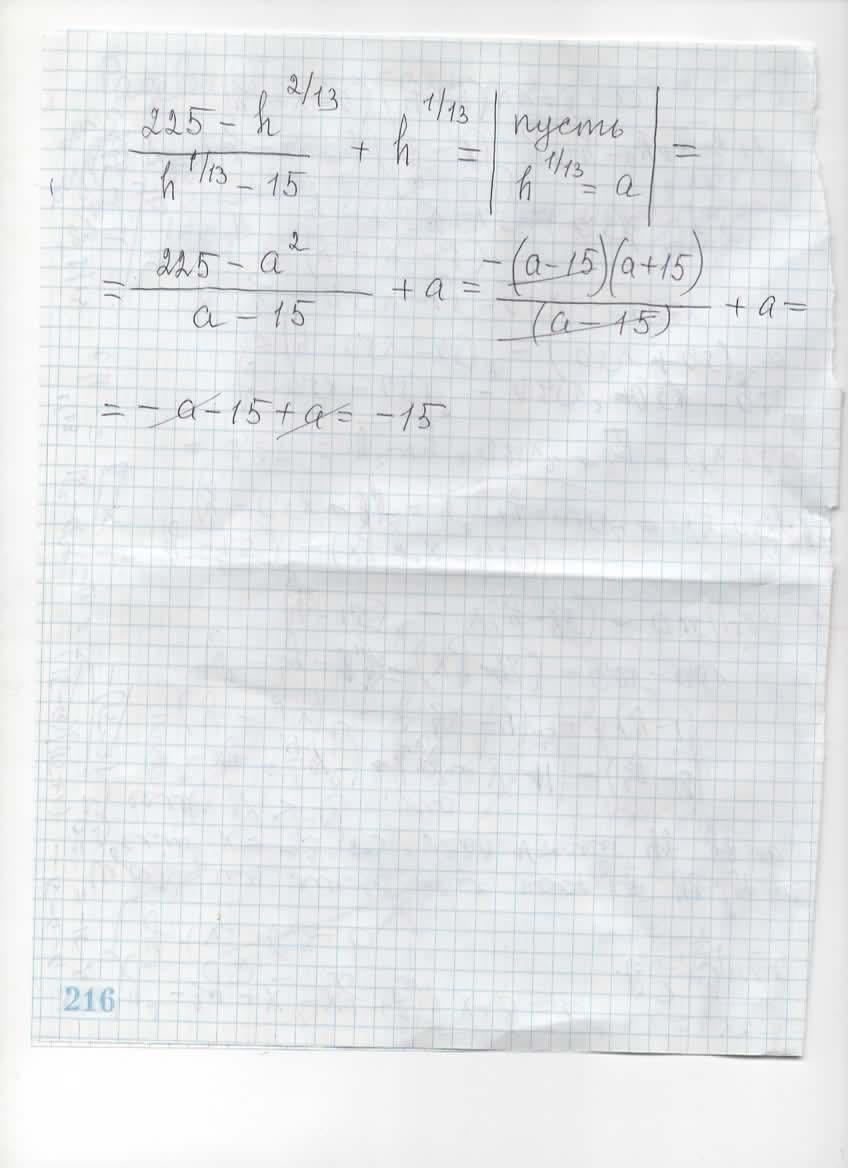 (225 - h^(2/13)) / (h^(1/13) - 15) + h^(1/13) = | пусть h^(1/13) = a | =
= (225 - a²) / (a - 15) + a = -(a-15)(a+15) / (a-15) + a =
= - a - 15 + a = -15
216